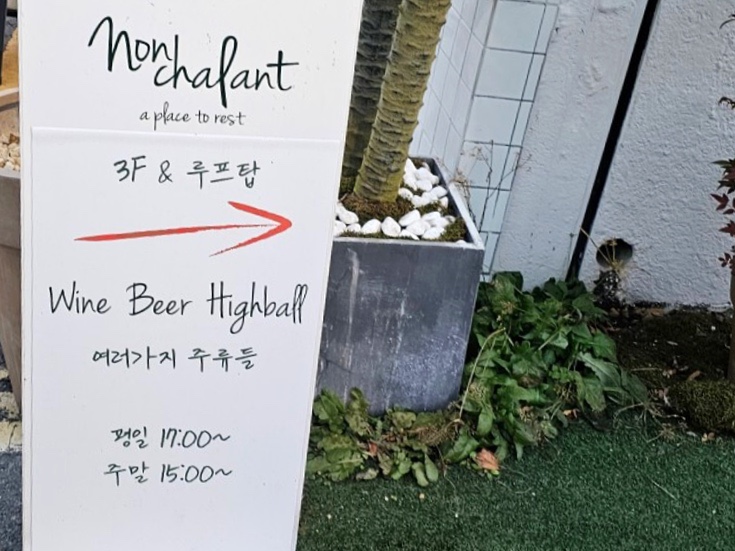 Nonchalant
a place to rest
3F & 루프탑
Wine Beer Highball
여러가지 주류들
평일 17:00~
주말 15:00~